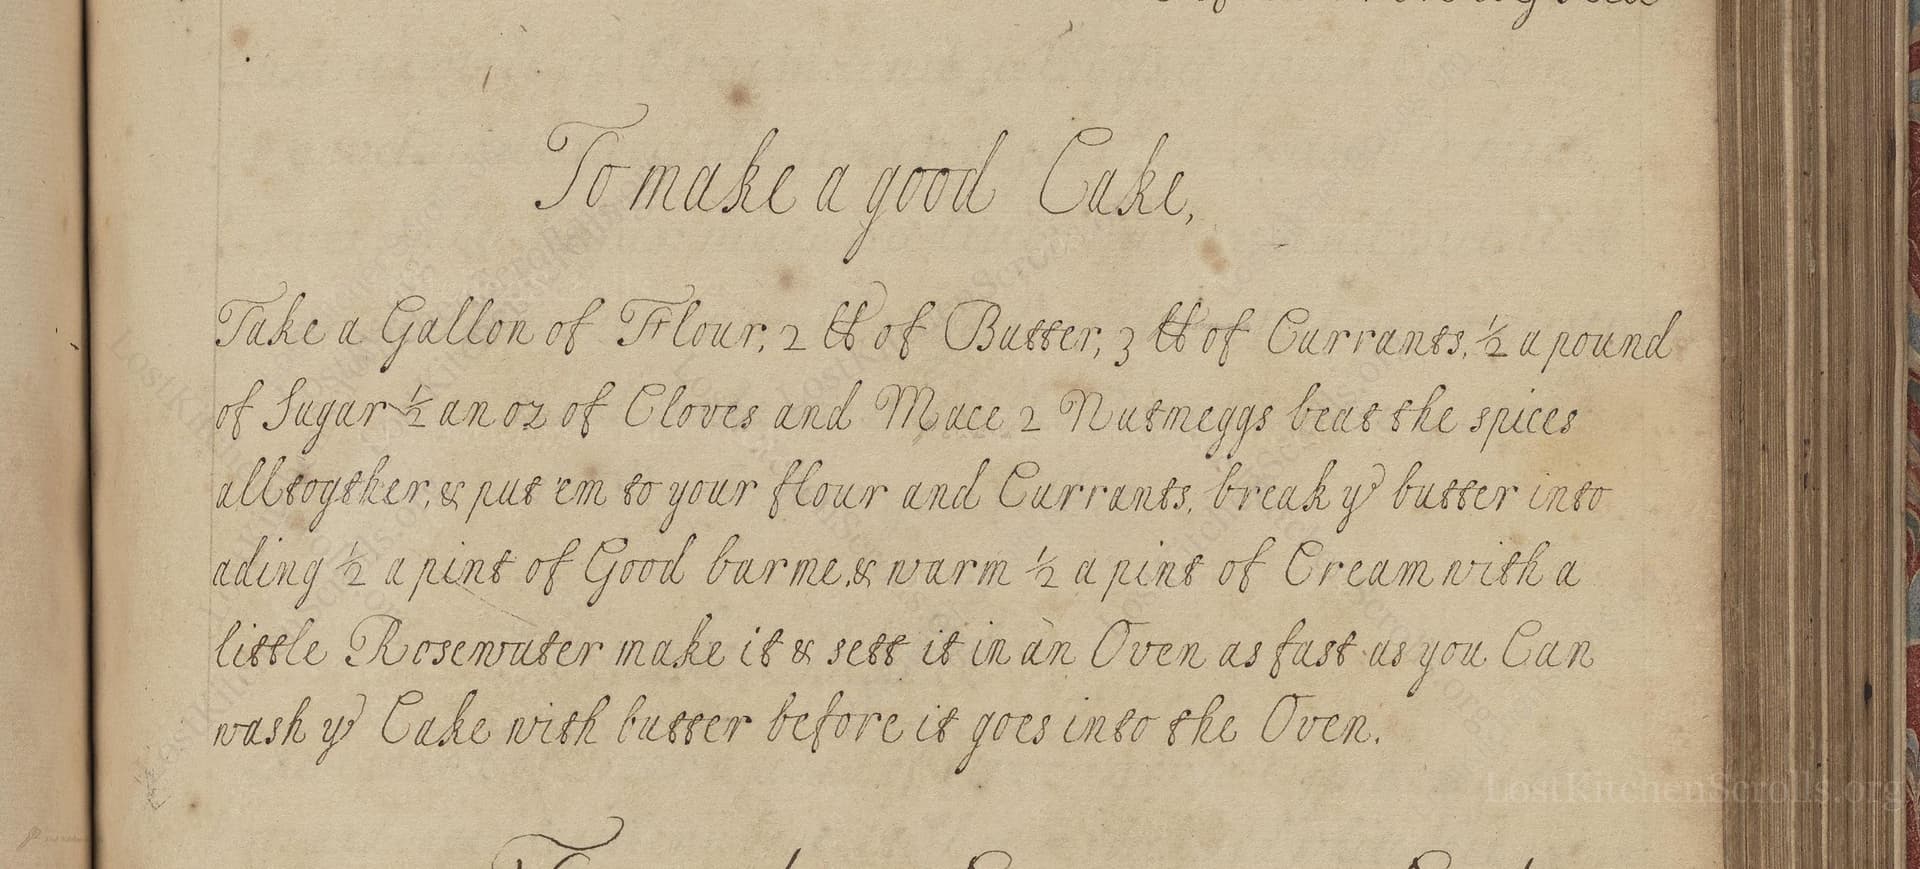 To make a good Cake,
Take a Gallon of Flour, 2 ℔ of Butter, 3 ℔ of Currants, ½ a pound
of Sugar ½ an oz of Cloves and Mace 2 Nutmeggs beat the spices
alltogther, & put 'em to your flour and Currants, break ye butter into
ading ½ a pint of Good barme, & warm ½ a pint of Cream with a
little Rosewater make it & sett it in an Oven as fast as you Can
wash ye Cake with butter before it goes into the Oven.
LostKitchenScrolls.org